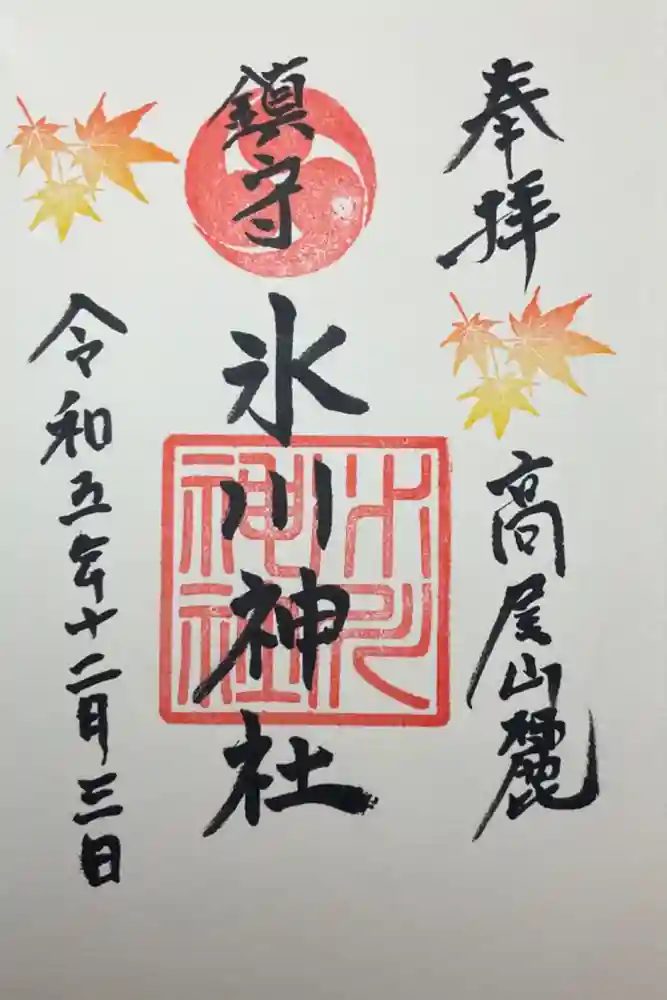 奉拝
高尾山麓
鎮守
氷川神社
氷川
神社
令和五年十二月三日